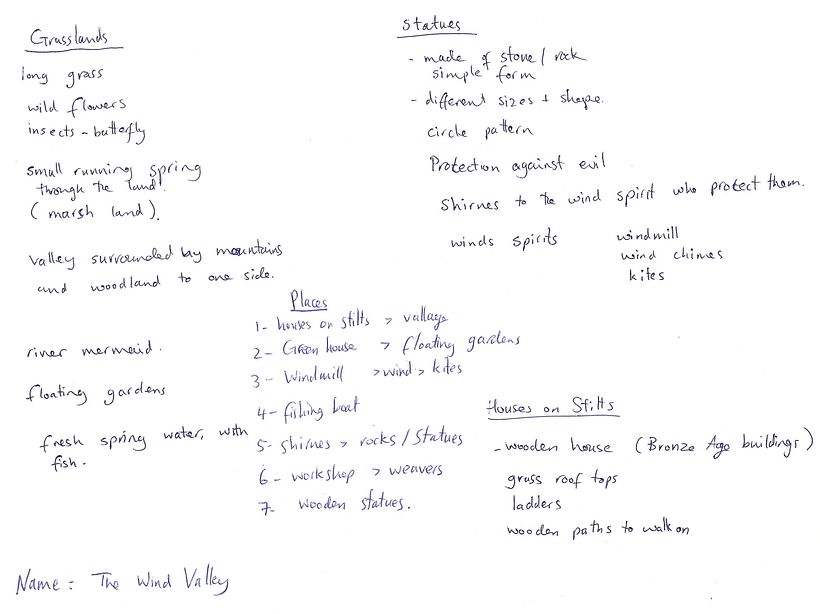 Grasslands
long grass
wild flowers
insects - butterfly
small running spring
through the land.
(marsh land).
valley surrounded by mountains
and woodland to one side.
river mermaid.
floating gardens
fresh spring water, with
fish.
Statues
- made of stone / rock
simple form
- different sizes + shape.
circle pattern
Protection against evil
Shirnes to the wind spirit who protect them.
winds spirits
windmill
wind chimes
kites
Places
1- houses on stilts > vallage
2- Green house > floating gardens
3- Windmill > wind > kites
4- fishing boat
5- shirnes > rocks / statues
6- workshop > weavers
7- wooden statues.
Houses on Stilts
- wooden house (Bronze Age buildings)
grass roof tops
ladders
wooden paths to walk on
Name: The Wind Valley